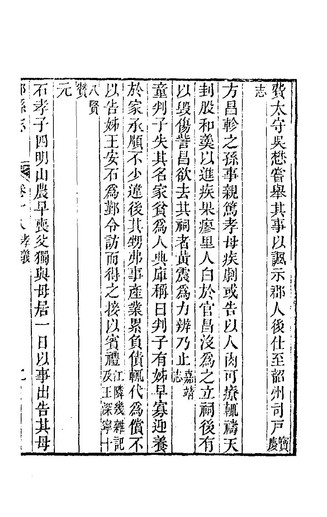 費太守吳懋嘗舉其事以諷示郡人後仕至韶州司戶寶慶
志
方昌軫之孫事親篤孝母疾劇或告以人肉可療輒禱天
刲股和羹以進疾果瘳里人白於官昌沒為之立祠後有
以毀傷訾昌欲去其祠者黃震為力辨乃止嘉靖志
童判子失其名家貧為人典庫稱曰判子有姊早寡迎養
於家承順不少違後其甥弗事產業累負債輒代為償不
以告姊王安石為鄞令訪而得之接以賓禮江隣幾雜記及王深寧十
八賢贊
元
石孝子四明山農早喪父獨與母居一日以事出告其母
卷 八 孝義